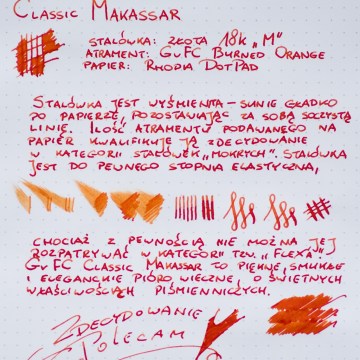 Classic Makassar
Stalówka: złota 18k „M"
Atrament: GvFC Burned Orange
Papier: Rhodia DotPad
Stalówka jest wyśmienita – sunie gładko
po papierze, pozostawiając za sobą soczystą
linię. Ilość atramentu podawanego na
papier kwalifikuje ją zdecydowanie
w kategorii stalówek „mokrych". Stalówka
jest do pewnego stopnia elastyczna,
chociaż z pewnością nie można jej
rozpatrywać w kategorii tzw. „flexa".
GvFC Classic Makassar to piękne, smukłe
i eleganckie pióro wieczne o świetnych
właściwościach piśmienniczych.
Zdecydowanie
Polecam